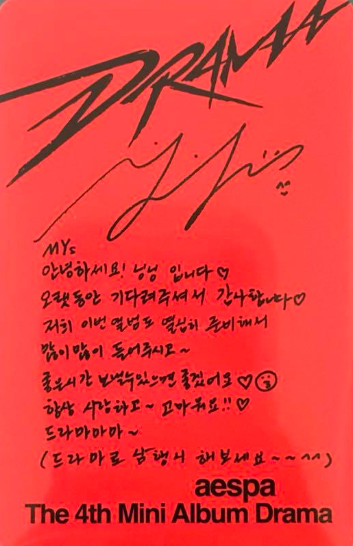 DRAMA
MYs
안녕하세요! 닝닝 입니다♡
오랫동안 기다려주셔서 감사합니다♡
저희 이번 앨범도 열심히 준비해서
많이많이 들어주시고~
좋은시간 보낼수있으면 좋겠어요♡☺
항상 사랑하고~ 고마워요!!♡
드라마마마~
(드라마로 삼행시 해보세요~~^^)
aespa
The 4th Mini Album Drama